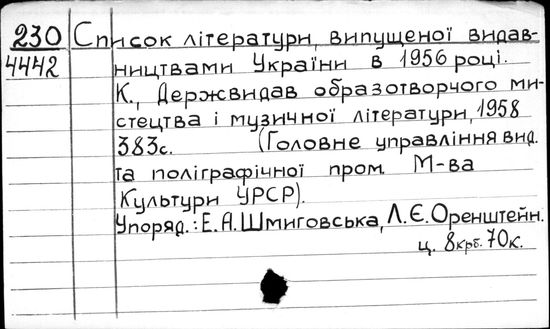 230 Список літератури, випущеної видав-
4442 ництвами України в 1956 році.
К., Держвидав образотворчого ми-
стецтва і музичної літератури, 1958
383с. (Головне управління вид.
та поліграфічної пром. М-ва
Культури УРСР).
Упоряд.: Е.А.Шмиговська, Л.Є.Оренштейн.
ц. 8крб. 70к.